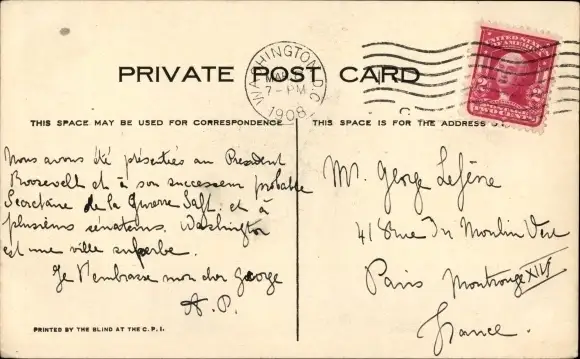 PRIVATE POST CARD
WASHINGTON, D.C.
MA
7-PM
1908
UNITED STATES
OF AMERICA
2 2
TWO CENTS
THIS SPACE MAY BE USED FOR CORRESPONDENCE
THIS SPACE IS FOR THE ADDRESS
Nous avons été présentés au President
Roosevelt et à son successeur probable
Secrétaire de la Guerre Taft et à
plusieurs sénateurs. Washington
est une ville superbe.
Je t'embrasse mon cher George
A. P.
Mr. George Lefèvre
41 Rue du Moulin Vert
Paris Montrouge XIV
France.
PRINTED BY THE BLIND AT THE C. P. I.